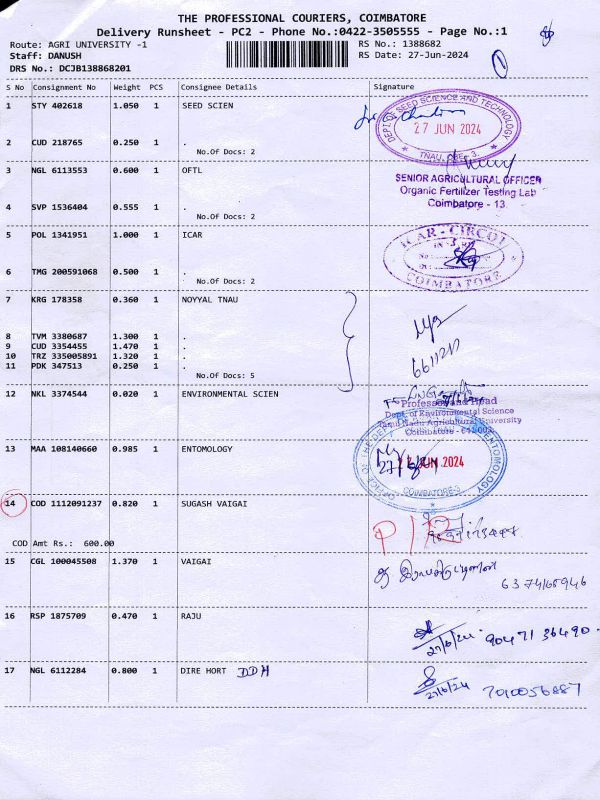 THE PROFESSIONAL COURIERS, COIMBATORE
Delivery Runsheet - PC2 - Phone No.:0422-3505555 - Page No.:1
Route: AGRI UNIVERSITY -1
RS No.: 1388682
Staff: DANUSH
RS Date: 27-Jun-2024
DRS No.: DCJB138868201
1
S No Consignment No Weight PCS Consignee Details Signature
1 STY 402618 1.050 1 SEED SCIEN
DEPT OF SEED SCIENCE AND TECHNOLOGY
27 JUN 2024
TNAU, CBE-3.
2 CUD 218765 0.250 1 .
No.Of Docs: 2
3 NGL 6113553 0.600 1 OFTL
SENIOR AGRICULTURAL OFFICER
Organic Fertilizer Testing Lab
Coimbatore - 13.
4 SVP 1536404 0.555 1 .
No.Of Docs: 2
5 POL 1341951 1.000 1 ICAR
ICAR - CIRCOT
COIMBATORE
6 TMG 200591068 0.500 1 .
No.Of Docs: 2
7 KRG 178358 0.360 1 NOYYAL TNAU
8 TVM 3380687 1.300 1 .
9 CUD 3354455 1.470 1 .
10 TRZ 335005891 1.320 1 .
11 PDK 347513 0.250 1 .
No.Of Docs: 5
12 NKL 3374544 0.020 1 ENVIRONMENTAL SCIEN
Professor and Head
Dept. of Environmental Science
Tamil Nadu Agricultural University
Coimbatore - 641 003
13 MAA 108140660 0.985 1 ENTOMOLOGY
27 JUN 2024
COIMBATORE-3
14 COD 1112091237 0.820 1 SUGASH VAIGAI
COD Amt Rs.: 600.00
15 CGL 100045508 1.370 1 VAIGAI
6374168946
16 RSP 1875709 0.470 1 RAJU
27/6/24 90471 36490
17 NGL 6112284 0.800 1 DIRE HORT DDH
27/6/24 7010056887